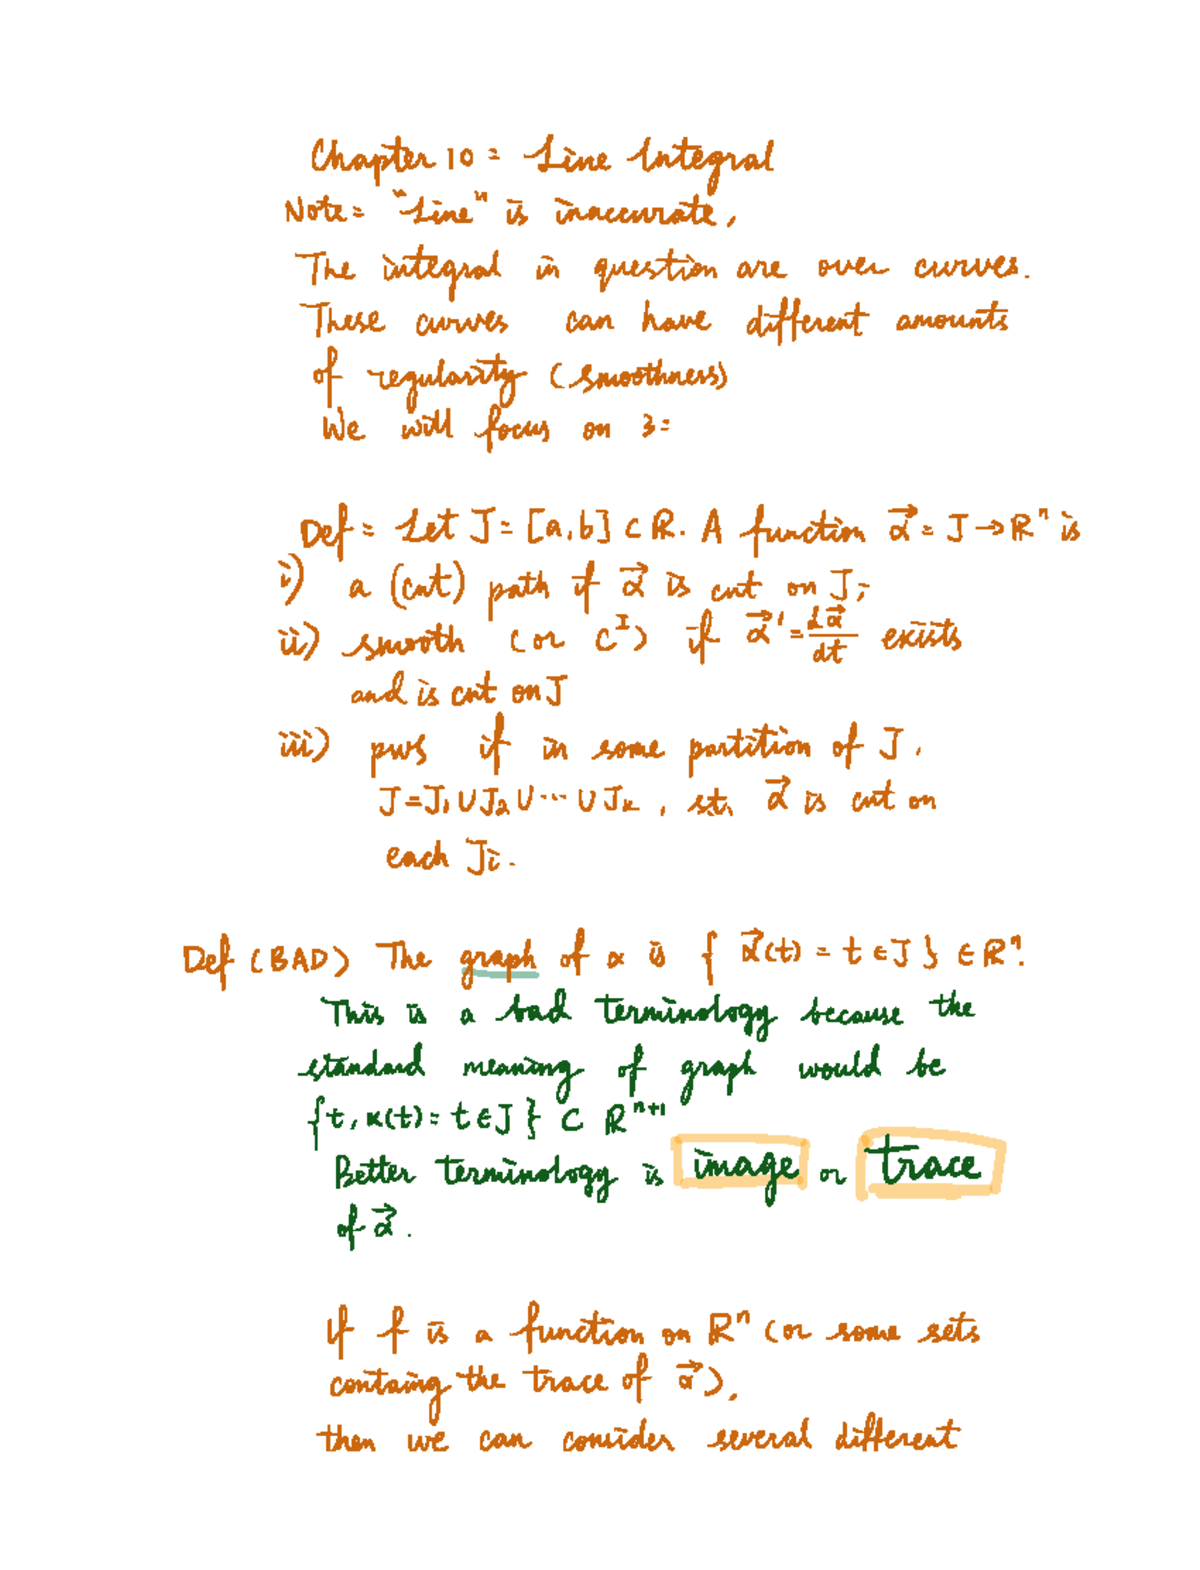 Chapter 10: Line Integral
Note: "Line" is inaccurate,
The integral in question are over curves.
These curves can have different amounts
of regularity (smoothness)
We will focus on 3:
Def: Let J = [a,b] ⊂ ℝ. A function α⃗: J → ℝⁿ is
i) a (cnt) path if α⃗ is cnt on J;
ii) smooth (or C^I) if α⃗' = dα⃗/dt exists
and is cnt on J
iii) pws if in some partition of J,
J = J₁ ∪ J₂ ∪ ⋯ ∪ Jₖ, st. α⃗ is cnt on
each Jᵢ.
Def (BAD) The graph of α is { α⃗(t) : t ∈ J } ∈ ℝⁿ.
This is a bad terminology because the
standard meaning of graph would be
{t, α(t) : t ∈ J } ⊂ ℝⁿ⁺¹
Better terminology is image or trace
of α⃗.
If f is a function on ℝⁿ (or some sets
containg the trace of α⃗),
then we can consider several different